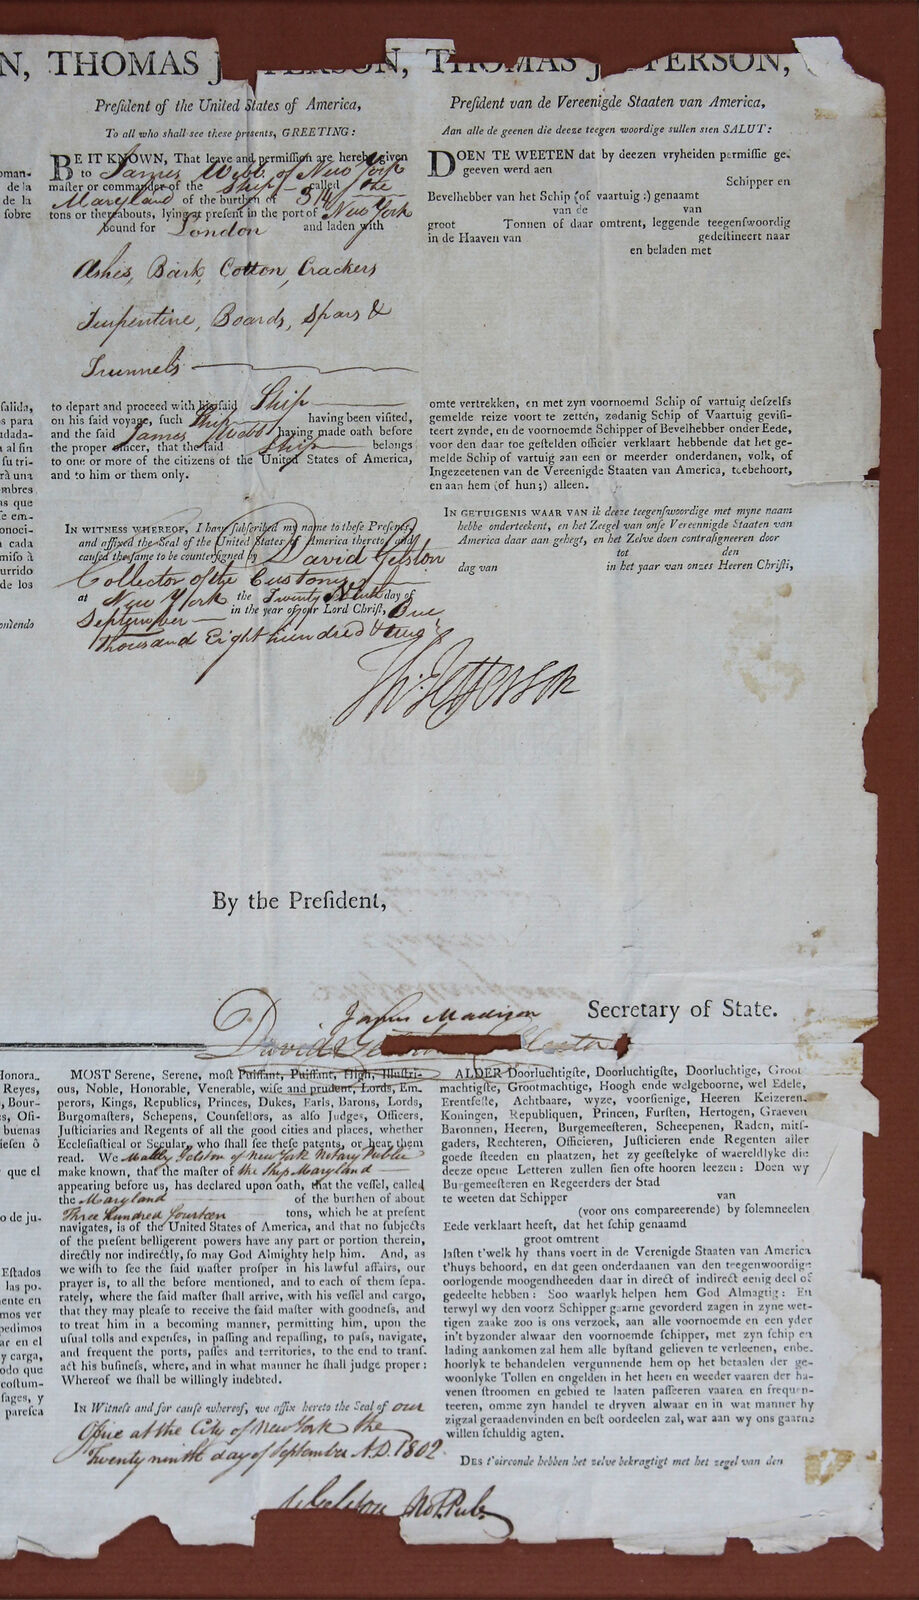 N,
oman-
de la
de la
sobre
salida,
os para
dada-
a al fin
su tri-
rà una
mbres
as que
se em-
onoci-
a cada
miso à
urrido
de los
oniendo
THOMAS J TERSON,
President of the United States of America,
To all who shall see these presents, GREETING:
BE IT KNOWN, That leave and permission are hereby given
to James Webb of New York
master or commander of the Ship called the
Maryland of the burden of 314
tons or thereabouts, lying at present in the port of New York
bound for London and laden with
Ashes, Bark, Cotton, Crackers
Turpentine, Boards, Spars &
Trunnels
to depart and proceed with his said Ship
on his said voyage, such Ship having been visited,
and the said James Webb having made oath before
the proper officer, that the said Ship belongs
to one or more of the citizens of the United States of America,
and to him or them only.
IN WITNESS WHEREOF, I have subscribed my name to these Presents,
and affixed the Seal of the United States of America thereto and
caused the same to be countersigned by David Gelston
Collector of the Customs
at New York the Twenty Ninth day of
September in the year of our Lord Christ, One
thousand Eight hundred & two
Th: Jefferson
THOMAS J FERSON,
President van de Vereenigde Staaten van America,
Aan alle de geenen die deeze teegen woordige sullen sien SALUT:
DOEN TE WEETEN dat by deezen vryheiden permissie ge-
geeven werd aen
Schipper en
Bevelhebber van het Schip (of vaartuig:) genaamt
van de van
groot Tonnen of daar omtrent, leggende teegenswoordig
in de Haaven van gedestineert naar
en beladen met
omte vertrekken, en met zyn voornoemd Schip of vartuig deszelfs
gemelde reize voort te zetten, zodanig Schip of Vaartuig gevisi-
teert zynde, en de voornoemde Schipper of Bevelhebber onder Eede,
voor den daar toe gestelden officier verklaart hebbende dat het ge-
melde Schip of vartuig aan een or meerder onderdanen, volk, of
Ingezeetenen van de Vereenigde Staaten van America, toebehoort,
en aan hem (of hun;) alleen.
IN GETUIGENIS WAAR VAN ik deeze teegenswoordige met myne naam
hebbe onderteekent, en het Zeegel van onse Vereennigde Staaten van
America daar aan gehegt, en het Zelve doen contrasigneren door
tot den
dag van in het yaar van onzes Heeren Christi,
By the President,
James Madison Secretary of State.
David Gelston
Honora..
Reyes,
Bour-
s, Ofi-
buenas
iesen ò
que el
o de ju-
Estados
las po-
mente en
mos ver
pedimos
ar en el
y carga,
odo que
costum-
sages, y
paresca
MOST Serene, Serene, most Puissant, Puissant, High, Illustri-
ous, Noble, Honorable, Venerable, wise and prudent, Lords, Em-
perors, Kings, Republics, Princes, Dukes, Earls, Barons, Lords,
Burgomasters, Schepens, Counsellors, as also Judges, Officers,
Justiciaries and Regents of all the good cities and places, whether
Ecclesiastical or Secular, who shall see these patents, or hear them
read. We Gelston of New York Notary Public
make known, that the master of the Ship Maryland
appearing before us, has declared upon oath, that the vessel, called
the Maryland of the burthen of about
Three Hundred fourteen tons, which he at present
navigates, is of the United States of America, and that no subjects
of the present belligerent powers have any part or portion therein,
directly nor indirectly, so may God Almighty help him. And, as
we wish to see the said master prosper in his lawful affairs, our
prayer is, to all the before mentioned, and to each of them sepa-
rately, where the said master shall arrive, with his vessel and cargo,
that they may please to receive the said master with goodness, and
to treat him in a becoming manner, permitting him, upon the
usual tolls and expenses, in passing and repassing, to pass, navigate,
and frequent the ports, passes and territories, to the end to trans-
act his business, where, and in what manner he shall judge proper:
Whereof we shall be willingly indebted.
IN Witness and for cause whereof, we affix hereto the Seal of our
Office at the City of New York the
Twenty ninth day of September A.D. 1802.
Gelston Not. Pub.
ALDER Doorluchtigste, Doorluchtigste, Doorluchtige, Groot
machtigste, Grootmachtige, Hoogh ende welgeboorne, wel Edele,
Erentfeste, Achtbaare, wyze, voorsienige, Heeren Keizeren.
Koningen, Republiquen, Princen, Fursten, Hertogen, Graeven
Baronnen, Heeren, Burgemeesteren, Scheepenen, Raden, mits-
gaders, Rechteren, Officieren, Justicieren ende Regenten aller
goede steeden en plaatzen, het zy geestelyke of waereldlyke die
deeze opene Letteren zullen sien ofte hooren leezen: Doen wy
Burgemeesteren en Regeerders der Stad
te weeten dat Schipper van
(voor ons compareerende) by solemneelen
Eede verklaart heeft, dat het schip genaamd
groot omtrent
lasten t'welk hy thans voert in de Verenigde Staaten van America
t'huys behoord, en dat geen onderdaanen van den teegenwoordige
oorlogende moogendheeden daar in direct of indirect eenig deel of
gedeelte hebben: Soo waarlyk helpen hem God Almagtig: En
terwyl wy den voorz Schipper gaarne gevorderd zagen in zyne wet-
tigen zaake zoo is ons verzoek, aan alle voornoemde en een yder
in't byzonder alwaar den voornoemde schipper, met zyn schip en
lading aankomen zal hem alle bystand gelieven te verleenen, enbe-
hoorlyk te behandelen vergunnende hem op het betaalen der ge-
woonlyke Tollen en ongelden in het heen en weeder vaaren der ha-
venen stroomen en gebied te laaten passeeren vaaren en frequen-
teeren, omme zyn handel te dryven alwaar en in wat manner hy
zigzal geraadenvinden en best oordeelen zal, war aan wy ons gaarne
willen schuldig agten.
DES t'oirconde hebben het zelve bekragtigt met het zegel van den